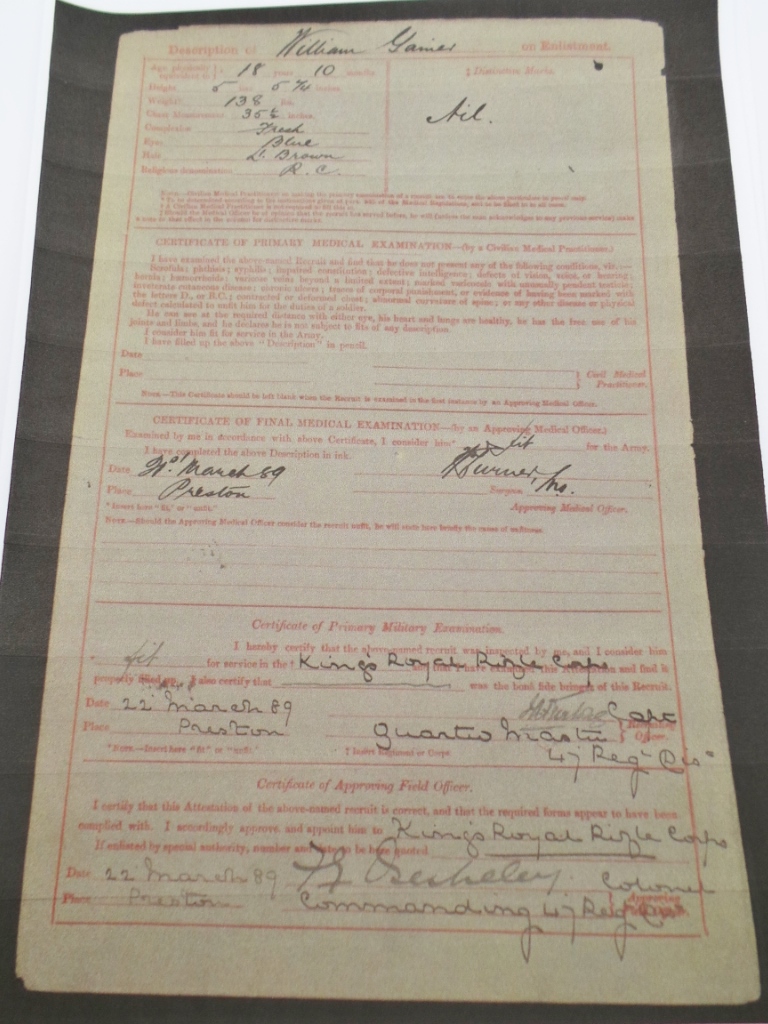 Description of William Gainer on Enlistment.
Age physically equivalent to 18 years 10 months
Height 5 feet 5 ¼ inches
Weight 138 lbs.
Chest Measurement 35½ inches
Complexion Fresh
Eyes Blue
Hair D. Brown
Religious denomination R. C.
‡ Distinctive Marks.
Nil.
CERTIFICATE OF PRIMARY MEDICAL EXAMINATION—(by a Civilian Medical Practitioner.)
I have examined the above-named Recruit and find that he does not present any of the following conditions, viz.:—
Scrofula; phthisis; syphilis; impaired constitution; defective intelligence; defects of vision, voice, or hearing;
hernia; hæmorrhoids; varicose veins beyond a limited extent; marked varicocele with unusually pendent testicle;
inveterate cutaneous disease; chronic ulcers; traces of corporal punishment, or evidence of having been marked with
the letters D., or B.C.; contracted or deformed chest; abnormal curvature of spine; or any other disease or physical
defect calculated to unfit him for the duties of a soldier.
He can see at the required distance with either eye, his heart and lungs are healthy, he has the free use of his
joints and limbs, and he declares he is not subject to fits of any description.
I consider him fit for service in the Army.
I have filled up the above "Description" in pencil.
Date
Place
Civil Medical
Practitioner.
NOTE.—This Certificate should be left blank when the Recruit is examined in the first instance by an Approving Medical Officer.
CERTIFICATE OF FINAL MEDICAL EXAMINATION—(by an Approving Medical Officer.)
Examined by me in accordance with above Certificate, I consider him* fit for the Army.
I have completed the above Description in ink.
Date March 89
Place Preston
Surgeon
Approving Medical Officer.
* Insert here "fit," or "unfit."
NOTE.—Should the Approving Medical Officer consider the recruit unfit, he will state here briefly the cause of unfitness.
Certificate of Primary Military Examination.
I hereby certify that the above-named recruit was inspected by me, and I consider him
* fit for service in the † Kings Royal Rifle Corps and that I have examined this Attestation and find it
properly filled up. I also certify that was the bonâ fide bringer of this Recruit.
Date 22 March 89 Capt
Place Preston Quarter Master
Recruiting Officer.
47 Reg Dis
* NOTE.—Insert here "fit" or "unfit." † Insert Regiment or Corps.
Certificate of Approving Field Officer.
I certify that this Attestation of the above-named recruit is correct, and that the required forms appear to have been
complied with. I accordingly approve, and appoint him to Kings Royal Rifle Corps
If enlisted by special authority, number and date to be here quoted
Date 22 March 89 Berkeley Colonel
Place Preston Commanding 47 Reg Dis
Approving